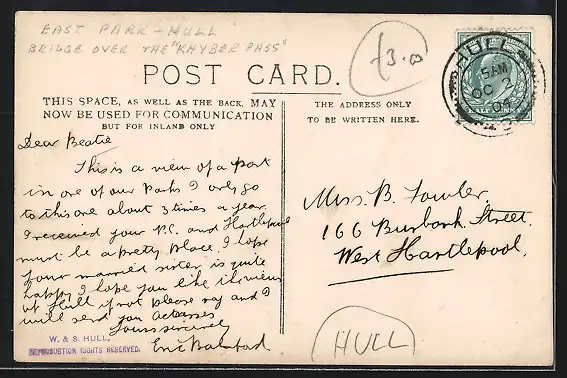 EAST PARK - HULL
BRIDGE OVER THE "KHYBER PASS"
£3.00
POST CARD.
HULL
5 AM
OC 2
04
THIS SPACE, AS WELL AS THE BACK, MAY
NOW BE USED FOR COMMUNICATION
BUT FOR INLAND ONLY
THE ADDRESS ONLY
TO BE WRITTEN HERE.
Dear Beatie
This is a view of a part
in one of our Parks I only go
to this one about 3 times a year.
I received your P.C. and Hartlepool
must be a pretty place. I hope
your married sister is quite
happy. I hope you like the views
of Hull if not please say and I
will send you Actresses
Yours sincerely
Eric
Miss. B. Fowler.
166 Burbank Street.
West Hartlepool.
W. & S. HULL.
REPRODUCTION RIGHTS RESERVED.
HULL